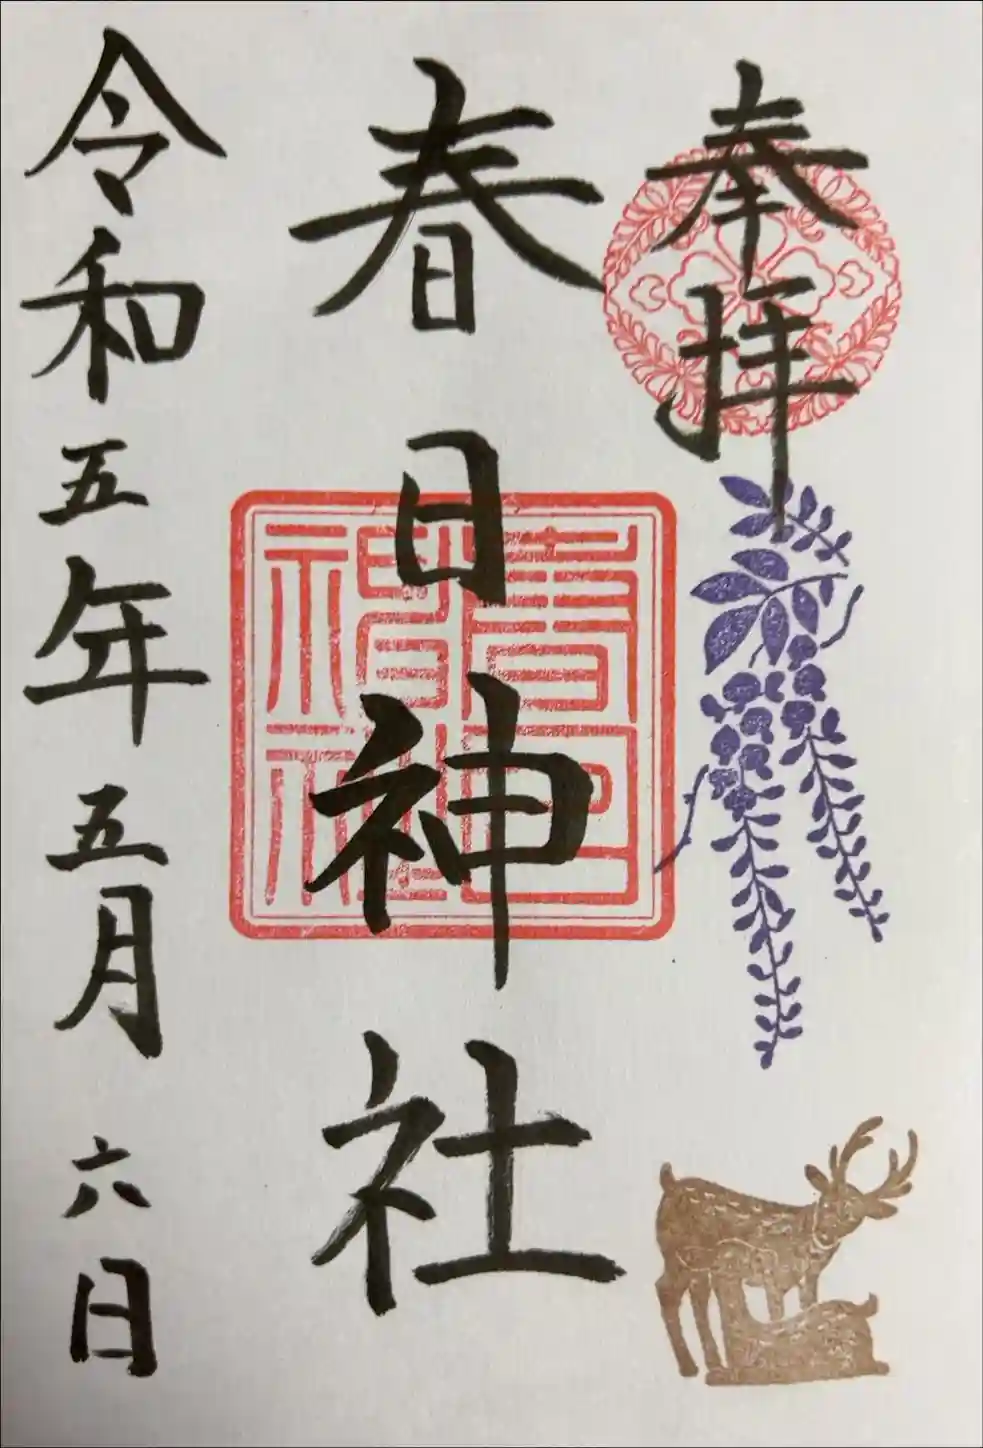 奉拝
春日神社
春日神社
令和五年五月六日